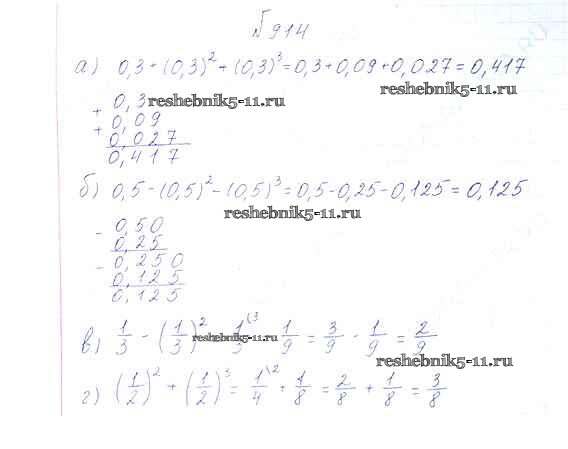 №914
а) 0,3 + (0,3)² + (0,3)³ = 0,3 + 0,09 + 0,027 = 0,417
reshebnik5-11.ru
+ 0,3 reshebnik5-11.ru
+ 0,09
0,027
0,417
б) 0,5 - (0,5)² - (0,5)³ = 0,5 - 0,25 - 0,125 = 0,125
reshebnik5-11.ru
- 0,50
0,25
- 0,250
0,125
0,125
в) 1/3 - (1/3)² = 1/3 ⁽³ - 1/9 = 3/9 - 1/9 = 2/9
reshebnik5-11.ru
reshebnik5-11.ru
г) (1/2)² + (1/2)³ = 1/4 \² + 1/8 = 2/8 + 1/8 = 3/8